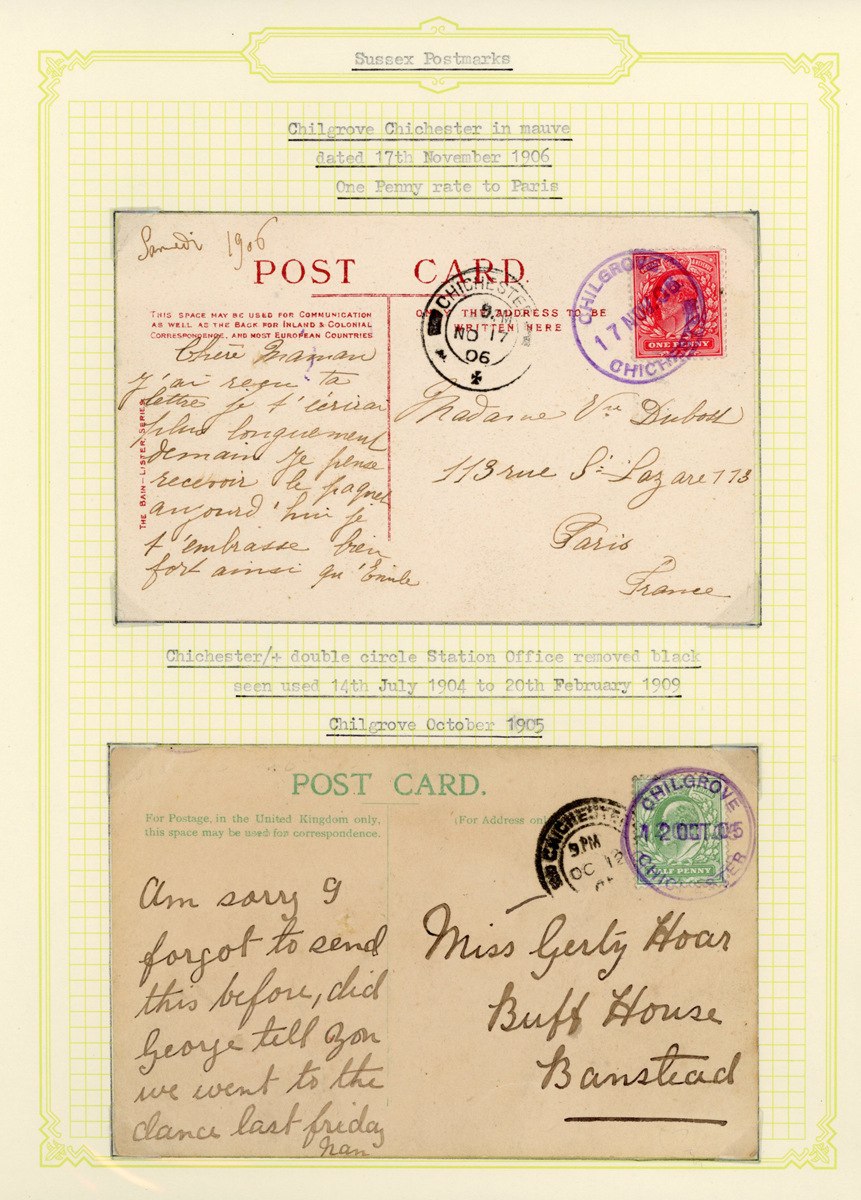 Sussex Postmarks
Chilgrove Chichester in mauve
dated 17th November 1906
One Penny rate to Paris
Samedi 1906
POST CARD.
THIS SPACE MAY BE USED FOR COMMUNICATION
AS WELL AS THE BACK FOR INLAND & COLONIAL
CORRESPONDENCE, AND MOST EUROPEAN COUNTRIES
ONLY THE ADDRESS TO BE
WRITTEN HERE
CHICHESTER
9. PM
NO 17
06
CHILGROVE
17 NOV 06
CHICHESTER
ONE PENNY
THE BAIN-LISTER SERIES
Chère Maman
J'ai reçu ta
lettre je t'écrirai
plus longuement
demain Je pense
recevoir le paquet
aujourd'hui je
t'embrasse bien
fort ainsi qu'Emile
Madame Vve Dubost
113 rue St Lazare 113
Paris
France
Chichester/+ double circle Station Office removed black
seen used 14th July 1904 to 20th February 1909
Chilgrove October 1905
POST CARD.
For Postage, in the United Kingdom only,
this space may be used for correspondence.
(For Address only
CHICHESTER
9. PM
OC 12
CHILGROVE
12 OCT 05
CHICHESTER
HALF PENNY
Am sorry I
forgot to send
this before, did
George tell you
we went to the
dance last friday
Nan
Miss Gerty Hoar
Buff House
Banstead